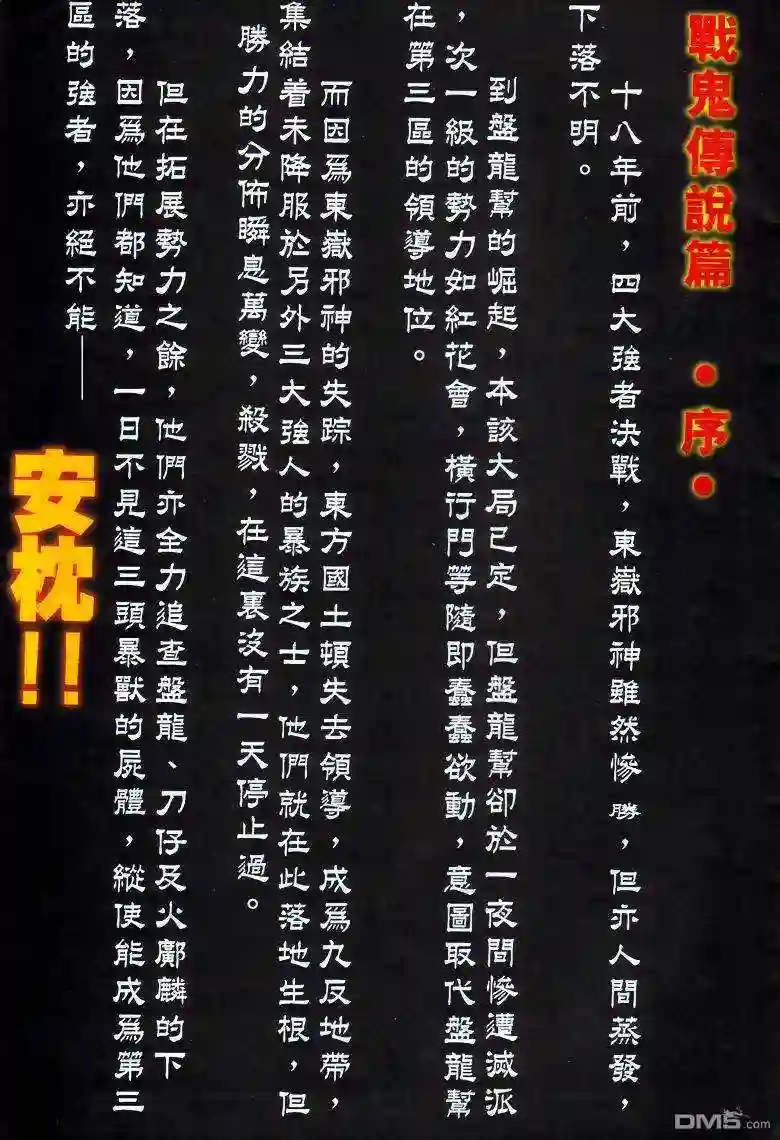 戰鬼傳說篇 •序•
十八年前，四大強者決戰，東嶽邪神雖然慘勝，但亦人間蒸發，
下落不明。
到盤龍幫的崛起，本該大局已定，但盤龍幫卻於一夜間慘遭滅派
，次一級的勢力如紅花會，橫行門等隨即蠢蠢欲動，意圖取代盤龍幫
在第三區的領導地位。
而因為東嶽邪神的失踪，東方國土頓失去領導，成為九反地帶，
集結着未降服於另外三大強人的暴族之士，他們就在此落地生根，但
勝力的分佈瞬息萬變，殺戮，在這裏沒有一天停止過。
但在拓展勢力之餘，他們亦全力追查盤龍、刀仔及火鄺麟的下
落，因為他們都知道，一日不見這三頭暴獸的屍體，縱使能成為第三
區的強者，亦絕不能——
安枕!!
DM5.com